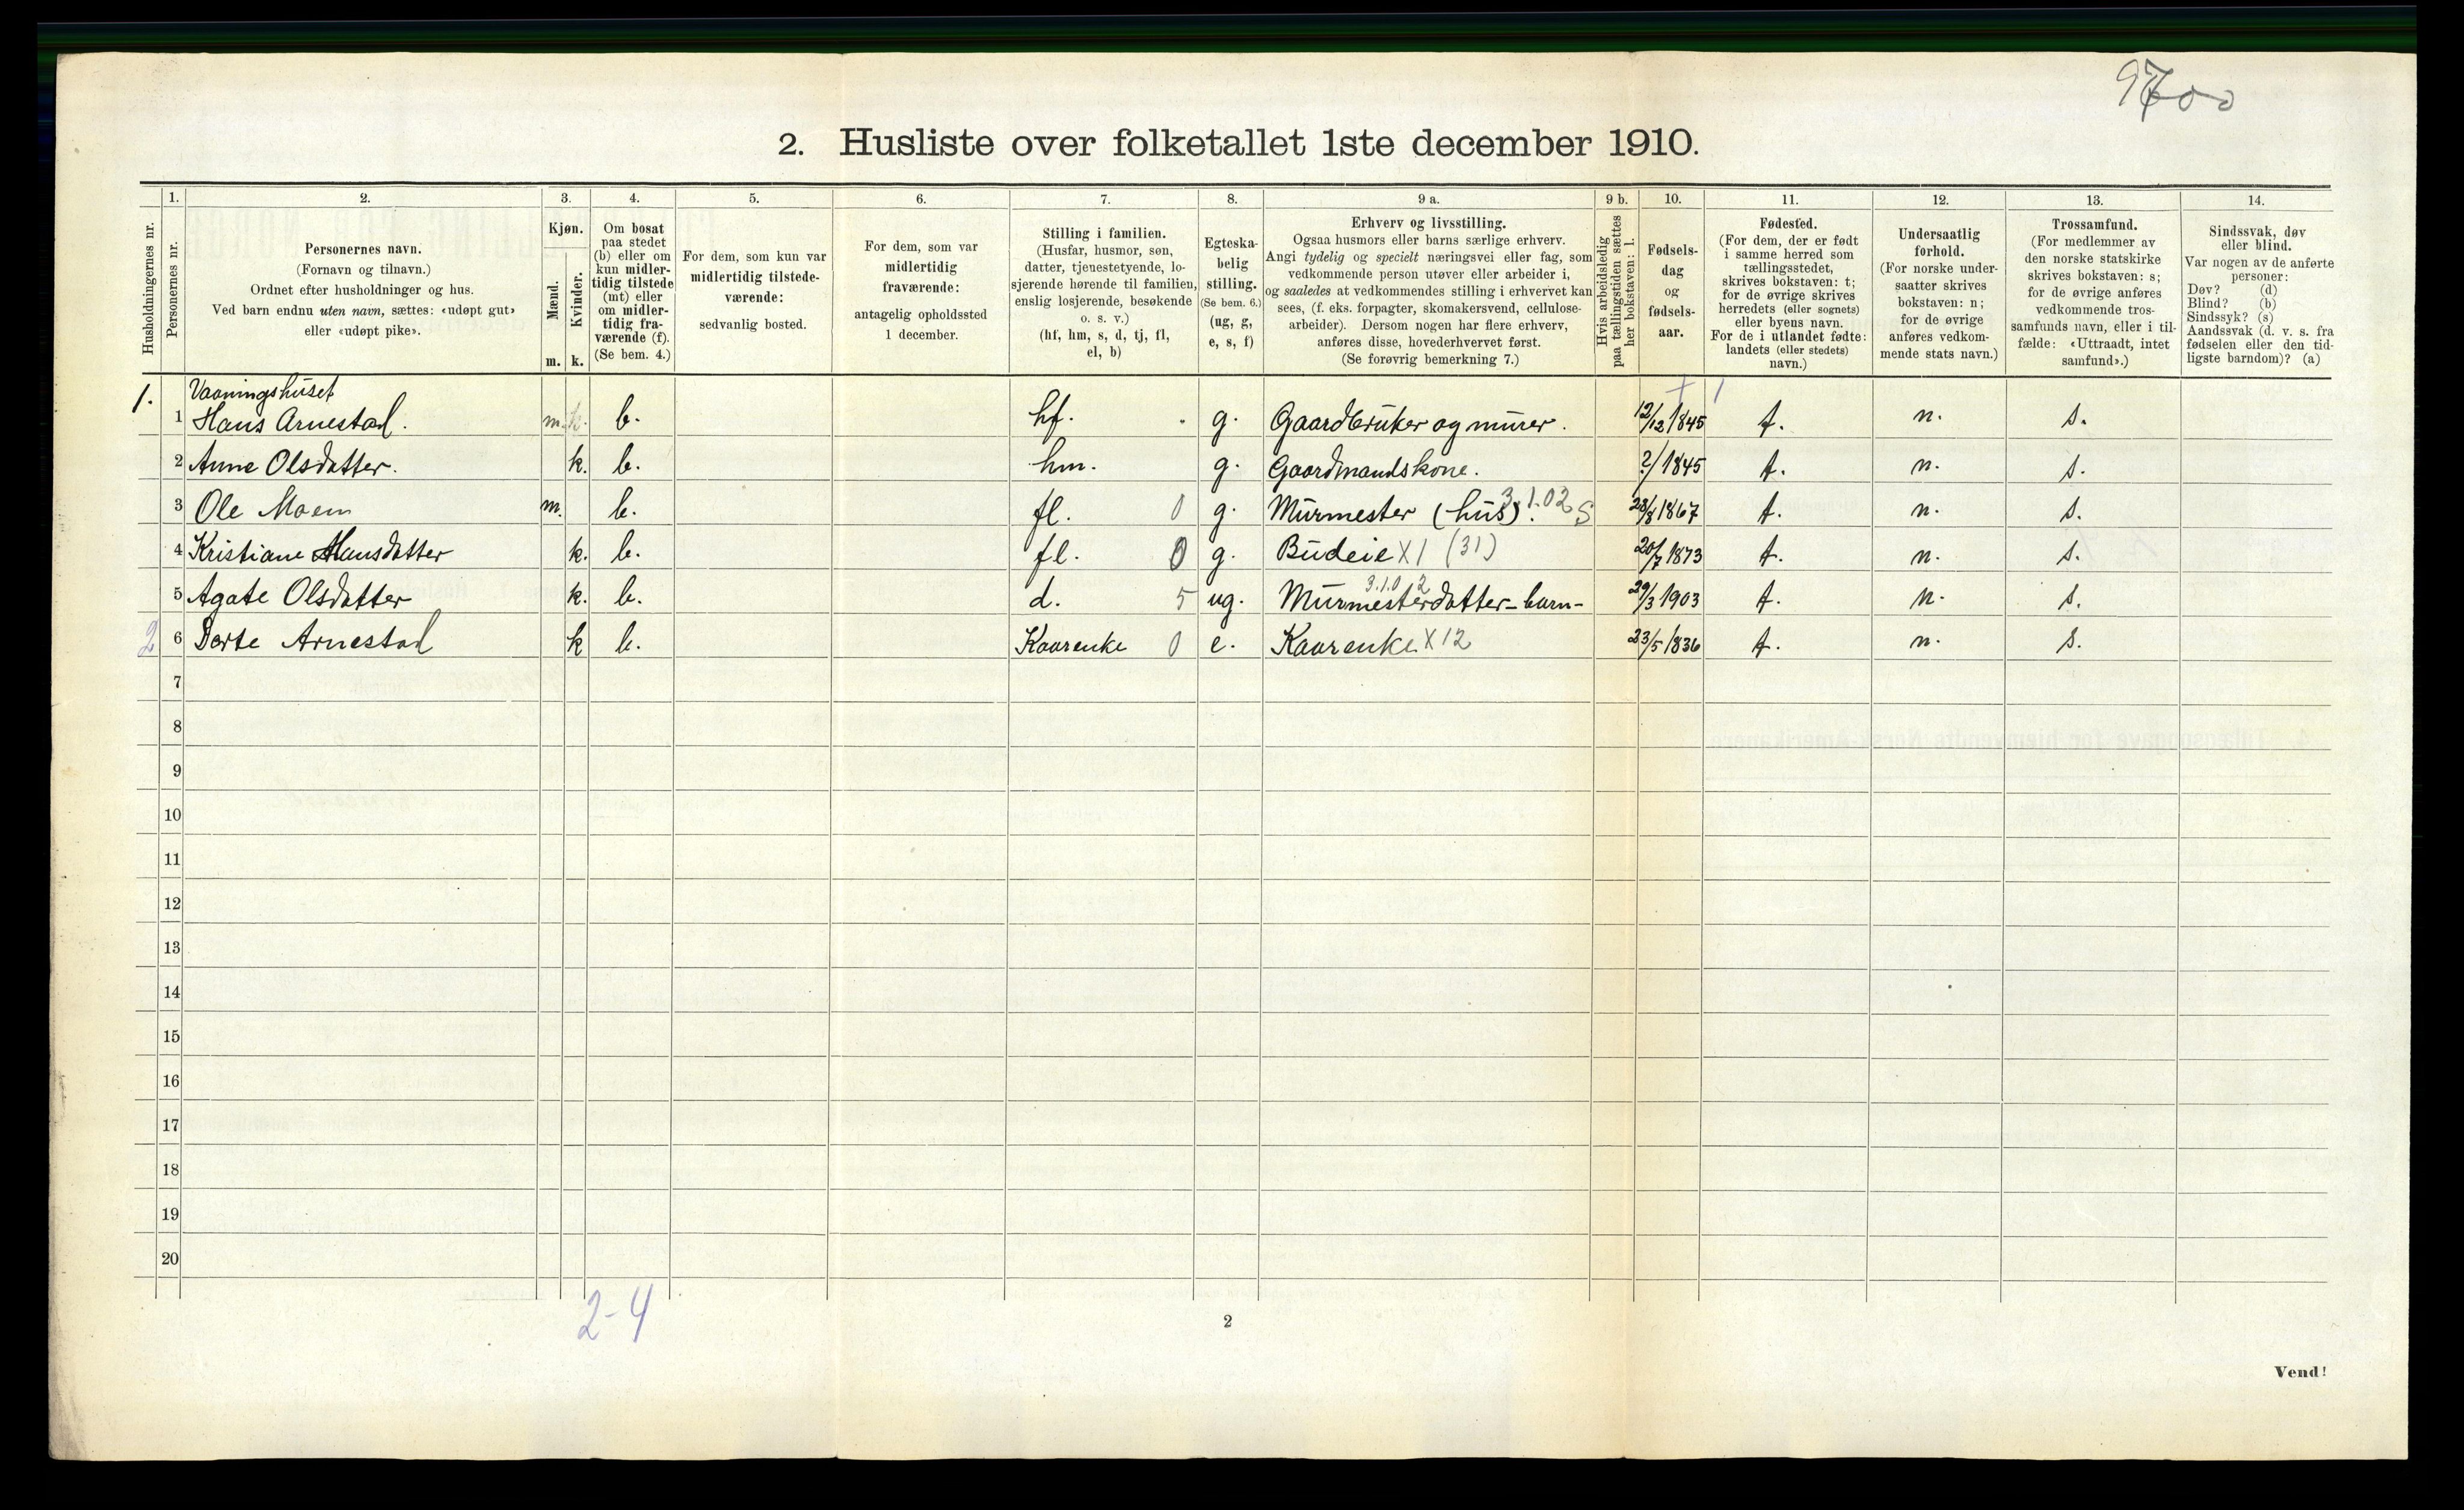 9700
2. Husliste over folketallet 1ste december 1910.
Husholdningernes nr.
1. Personernes nr.
2. Personernes navn. (Fornavn og tilnavn.) Ordnet efter husholdninger og hus. Ved barn endnu uten navn, sættes: «udøpt gut» eller «udøpt pike».
3. Kjøn. Mænd. m. Kvinder. k.
4. Om bosat paa stedet (b) eller om kun midlertidig tilstede (mt) eller om midlertidig fraværende (f). (Se bem. 4.)
5. For dem, som kun var midlertidig tilstedeværende: sedvanlig bosted.
6. For dem, som var midlertidig fraværende: antagelig opholdssted 1 december.
7. Stilling i familien. (Husfar, husmor, søn, datter, tjenestetyende, losjerende hørende til familien, enslig losjerende, besøkende o. s. v.) (hf, hm, s, d, tj, fl, el, b)
8. Egteskabelig stilling. (Se bem. 6.) (ug, g, e, s, f)
9 a. Erhverv og livsstilling. Ogsaa husmors eller barns særlige erhverv. Angi tydelig og specielt næringsvei eller fag, som vedkommende person utøver eller arbeider i, og saaledes at vedkommendes stilling i erhvervet kan sees, (f. eks. forpagter, skomakersvend, cellulosearbeider). Dersom nogen har flere erhverv, anføres disse, hovederhvervet først. (Se forøvrig bemerkning 7.)
9 b. Hvis arbeidsledig paa tællingstiden sættes her bokstaven: l.
10. Fødselsdag og fødselsaar.
11. Fødested. (For dem, der er født i samme herred som tællingsstedet, skrives bokstaven: t; for de øvrige skrives herredets (eller sognets) eller byens navn. For de i utlandet fødte: landets (eller stedets) navn.)
12. Undersaatlig forhold. (For norske undersaatter skrives bokstaven: n; for de øvrige anføres vedkommende stats navn.)
13. Trossamfund. (For medlemmer av den norske statskirke skrives bokstaven: s; for de øvrige anføres vedkommende trossamfunds navn, eller i tilfælde: «Uttraadt, intet samfund».)
14. Sindssvak, døv eller blind. Var nogen av de anførte personer: Døv? (d) Blind? (b) Sindssyk? (s) Aandssvak (d. v. s. fra fødselen eller den tidligste barndom)? (a)
Vaaningshuset
1. 1 Hans Arnestad. m. k. b. hf. g. Gaardbruker og murer. 12/12 1845 t. n. s.
2 Anne Olsdatter. k. b. hm. g. Gaardmandskone. ?/1845 t. n. s.
3 Ole Moen m. b. fl. 0 g. Murmester (hus). 3.1.02 S 28/8 1867 t. n. s.
4 Kristiane Hansdatter k. b. fl. 0 g. Budeie X1 (31) 20/7 1873 t. n. s.
5 Agate Olsdatter k. b. d. 5 ug. Murmesterdatter-barn- 3.1.02 29/3 1903 t. n. s.
2 6 Dorte Arnestad k b. Kaarenke 0 e. Kaarenke X12 23/5 1836 t. n. s.
7
8
9
10
11
12
13
14
15
16
17
18
19
20
2-4
2
Vend!